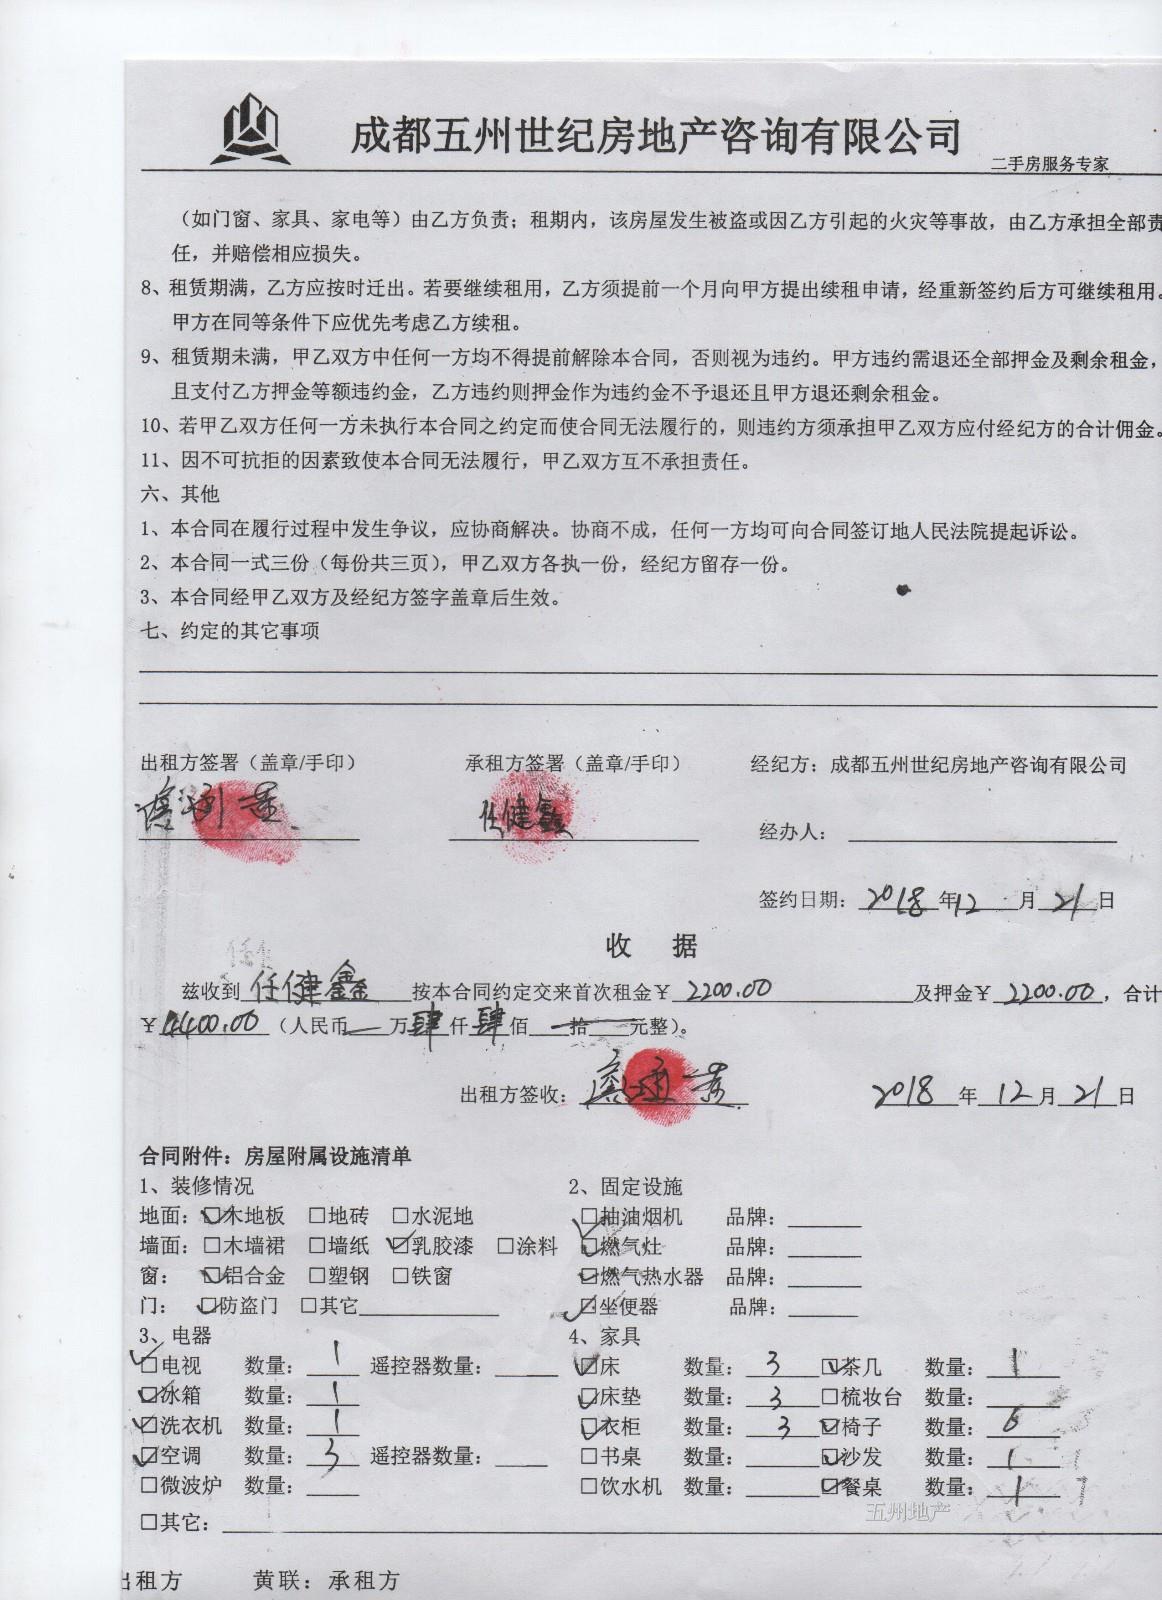 成都五州世纪房地产咨询有限公司
二手房服务专家
（如门窗、家具、家电等）由乙方负责；租期内，该房屋发生被盗或因乙方引起的火灾等事故，由乙方承担全部责
任，并赔偿相应损失。
8、租赁期满，乙方应按时迁出。若要继续租用，乙方须提前一个月向甲方提出续租申请，经重新签约后方可继续租用。
甲方在同等条件下应优先考虑乙方续租。
9、租赁期未满，甲乙双方中任何一方均不得提前解除本合同，否则视为违约。甲方违约需退还全部押金及剩余租金，
且支付乙方押金等额违约金，乙方违约则押金作为违约金不予退还且甲方退还剩余租金。
10、若甲乙双方任何一方未执行本合同之约定而使合同无法履行的，则违约方须承担甲乙双方应付经纪方的合计佣金。
11、因不可抗拒的因素致使本合同无法履行，甲乙双方互不承担责任。
六、其他
1、本合同在履行过程中发生争议，应协商解决。协商不成，任何一方均可向合同签订地人民法院提起诉讼。
2、本合同一式三份（每份共三页），甲乙双方各执一份，经纪方留存一份。
3、本合同经甲乙双方及经纪方签字盖章后生效。
七、约定的其它事项
出租方签署（盖章/手印） 承租方签署（盖章/手印） 经纪方：成都五州世纪房地产咨询有限公司
任健鑫 经办人：
签约日期：2018年12月21日
收 据
兹收到 任健鑫 按本合同约定交来首次租金￥2200.00 及押金￥2200.00，合计
￥4400.00（人民币 万肆仟肆佰 拾 元整）。
出租方签收： 2018年12月21日
合同附件：房屋附属设施清单
1、装修情况 2、固定设施
地面：☑木地板 □地砖 □水泥地 ☑抽油烟机 品牌：
墙面：□木墙裙 □墙纸 ☑乳胶漆 □涂料 ☑燃气灶 品牌：
窗： ☑铝合金 □塑钢 □铁窗 ☑燃气热水器 品牌：
门： ☑防盗门 □其它 ☑坐便器 品牌：
3、电器 4、家具
☑电视 数量：1 遥控器数量： ☑床 数量：3 ☑茶几 数量：1
☑冰箱 数量：1 ☑床垫 数量：3 □梳妆台 数量：
☑洗衣机 数量：1 ☑衣柜 数量：3 ☑椅子 数量：6
☑空调 数量：3 遥控器数量： □书桌 数量： ☑沙发 数量：1
□微波炉 数量： □饮水机 数量： ☑餐桌 数量：1
五州地产
□其它：
出租方 黄联：承租方